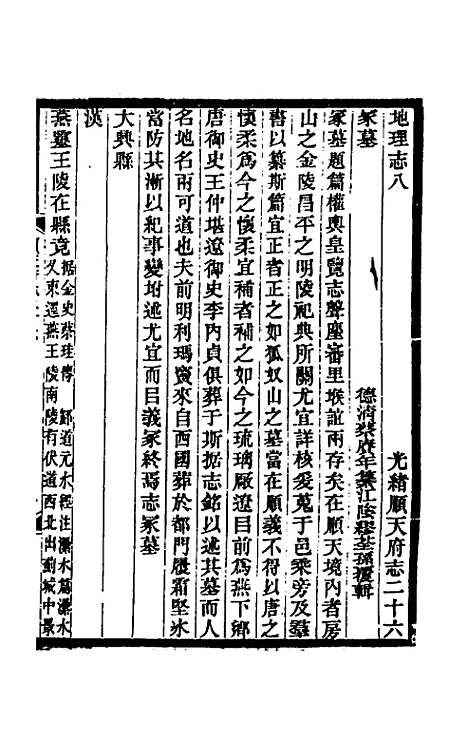 地理志八　光緒順天府志二十六
冢墓　德清蔡賡年纂江陰繆荃孫覆輯
冢墓題篇權輿皇覽志聲座審里堠誼兩存矣在順天境內者房
山之金陵昌平之明陵祀典所關尤宜詳核爰蒐于邑乘旁及羣
書以纂斯篇宜正者正之如狐奴山之墓當在順義不得以唐之
懷柔爲今之懷柔宜補者補之如今之琉璃厰遼目前爲燕下鄉
唐御史王仲堪遼御史李內貞俱葬于斯據志銘以述其墓而人
名地名兩可道也夫前明利瑪竇來自西國葬於都門履霜堅冰
當防其漸以紀事變坿述尤宜而目義冢終焉志冢墓
大興縣
漢
燕靈王陵在縣竟
據金史蔡珪傳　酈道元水經注㶟水篇㶟水
又東逕燕王陵南陵有伏道西北出薊城中景